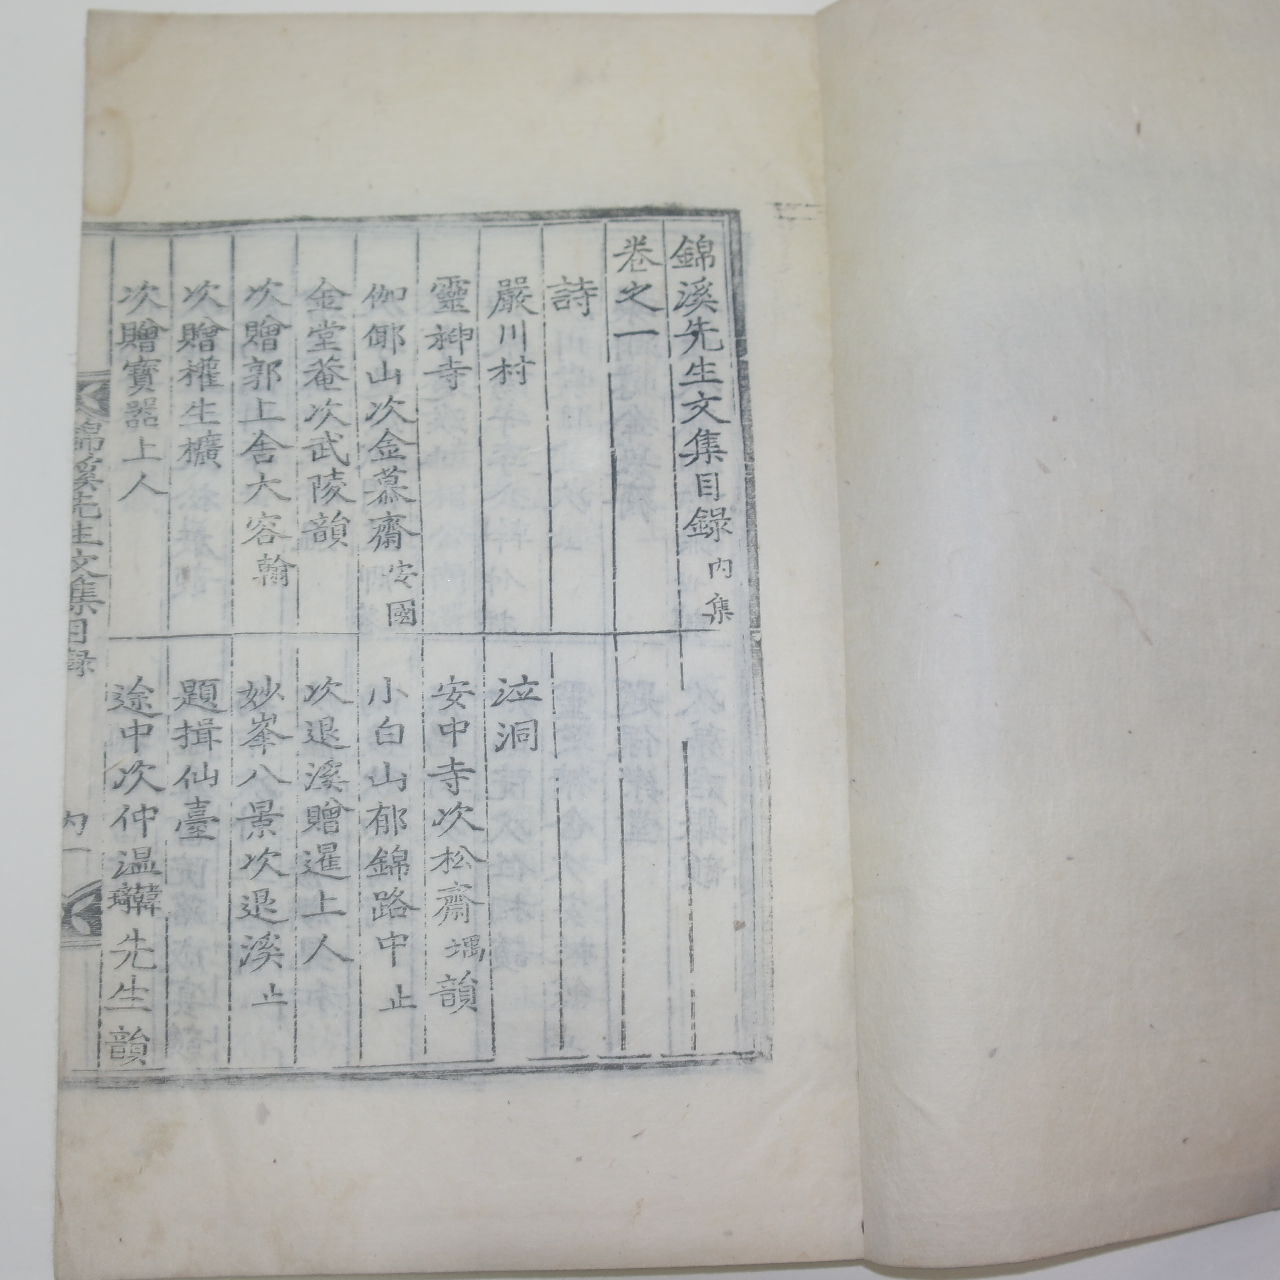 錦溪先生文集目錄 內集
卷之一
詩
嚴川村
泣洞
靈神寺
安中寺次松齋堣韻
伽倻山次金慕齋安國
小白山郁錦路中止
金堂菴次武陵韻
次退溪贈暹上人
次贈郭上舍大容翰
妙峯八景次退溪止
次贈權生擴
題揖仙臺
次贈寶器上人
途中次仲溫先生韻
錦溪先生文集目錄
內一